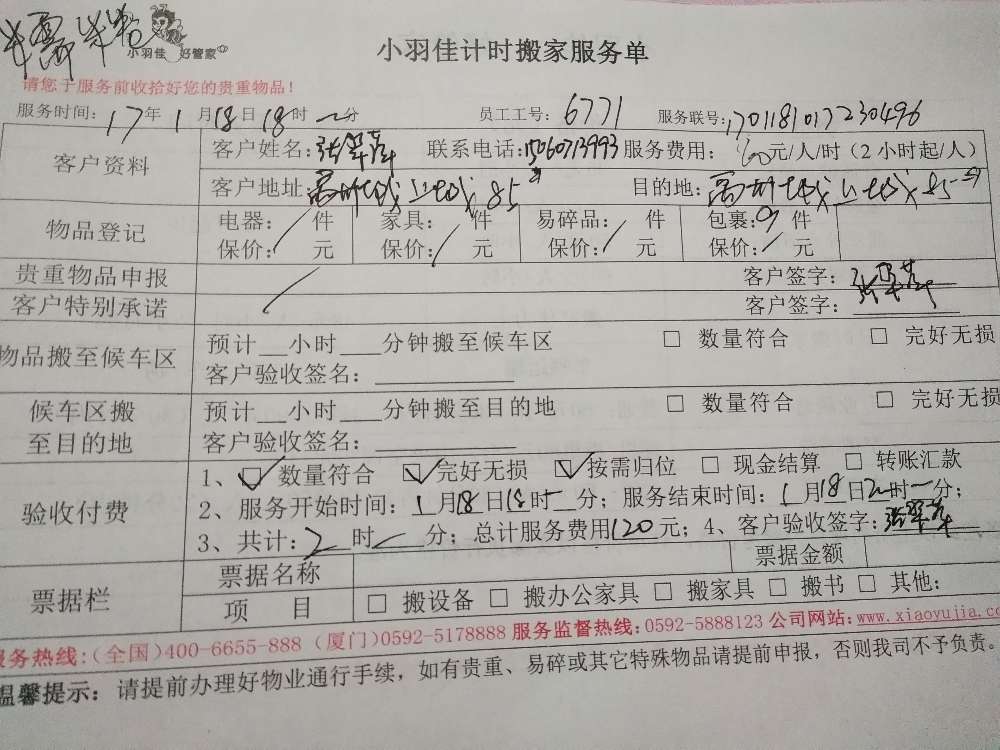 小羽佳 好管家
小羽佳计时搬家服务单
请您于服务前收拾好您的贵重物品！
服务时间：17年1月18日18时一分 员工工号：6771 服务联号：1701181017230496
客户资料 客户姓名：张翠萍 联系电话：15060713993 服务费用：60元/人/时（2小时起/人）
客户地址：85 目的地：85
物品登记 电器：/件 家具：/件 易碎品：/件 包裹：9件
保价：/元 保价：/元 保价：/元 保价：/元
贵重物品申报 / 客户签字：张翠萍
客户特别承诺 客户签字：
物品搬至候车区 预计__小时___分钟搬至候车区 □ 数量符合 □ 完好无损
客户验收签名：
候车区搬至目的地 预计__小时___分钟搬至目的地 □ 数量符合 □ 完好无损
客户验收签名：
验收付费 1、☑数量符合 ☑完好无损 ☑按需归位 □ 现金结算 □ 转账汇款
2、服务开始时间：1月18日18时一分；服务结束时间：1月18日20时一分；
3、共计：2时/分；总计服务费用120元；4、客户验收签字：张翠萍
票据栏 票据名称 票据金额
项 目 □ 搬设备 □ 搬办公家具 □ 搬家具 □ 搬书 □ 其他：
服务热线：（全国）400-6655-888（厦门）0592-5178888 服务监督热线：0592-5888123 公司网站：www.xiaoyujia.co
温馨提示：请提前办理好物业通行手续，如有贵重、易碎或其它特殊物品请提前申报，否则我司不予负责。